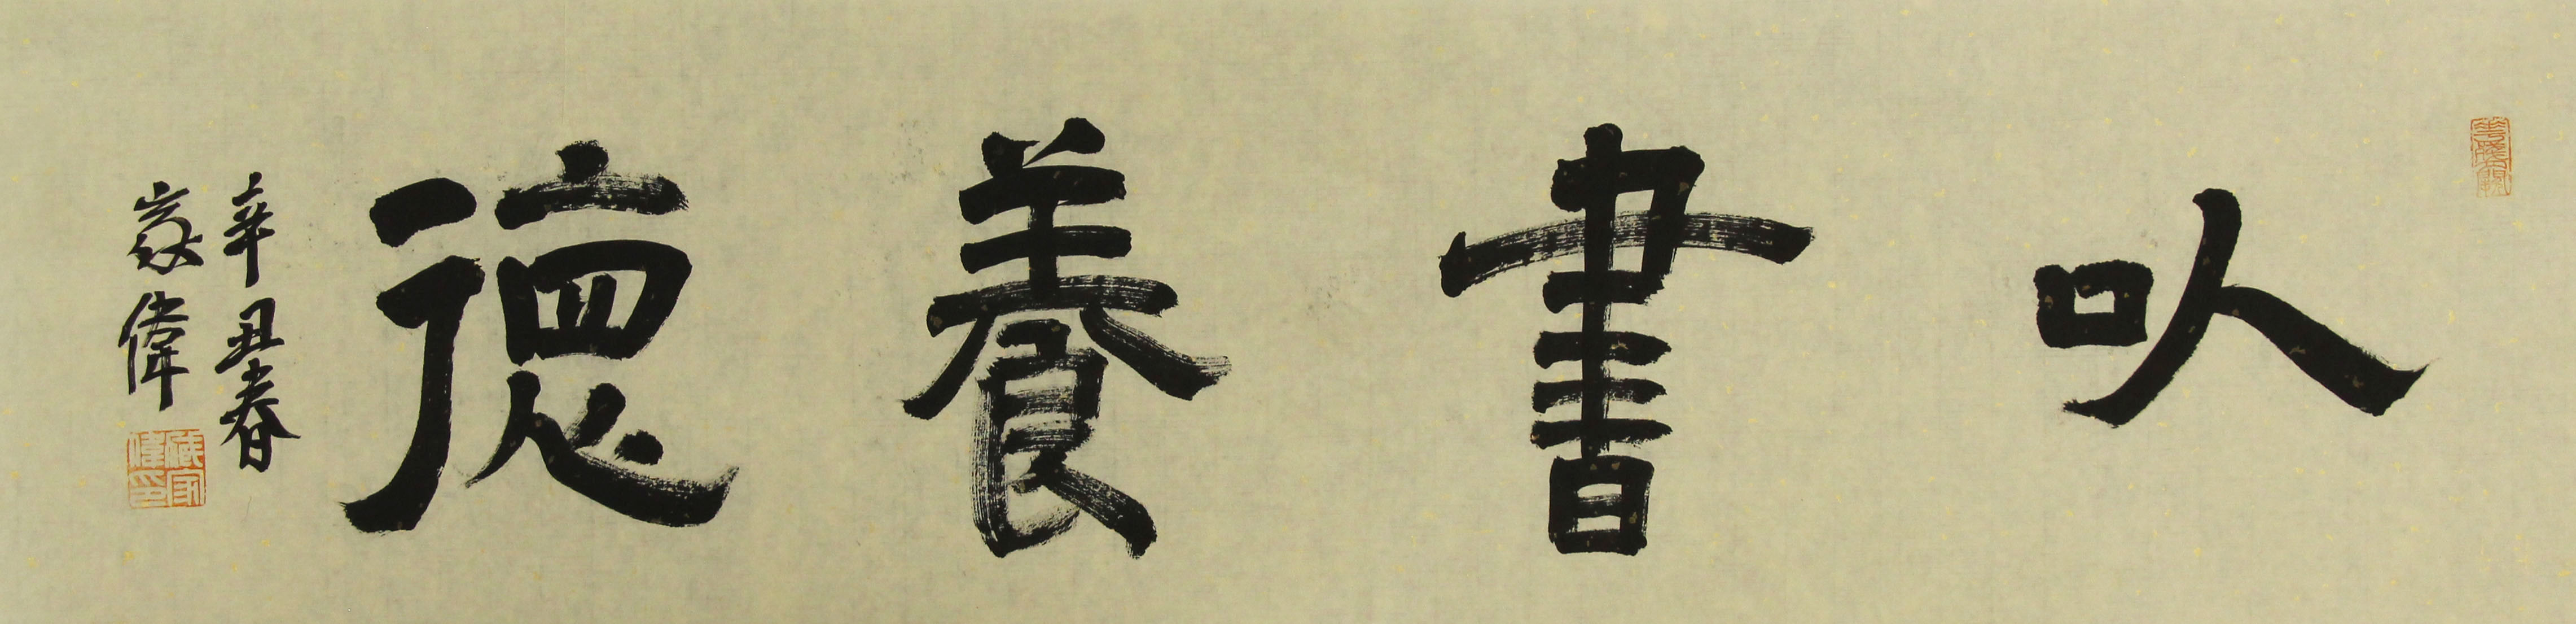 以書養德
辛丑春
家偉